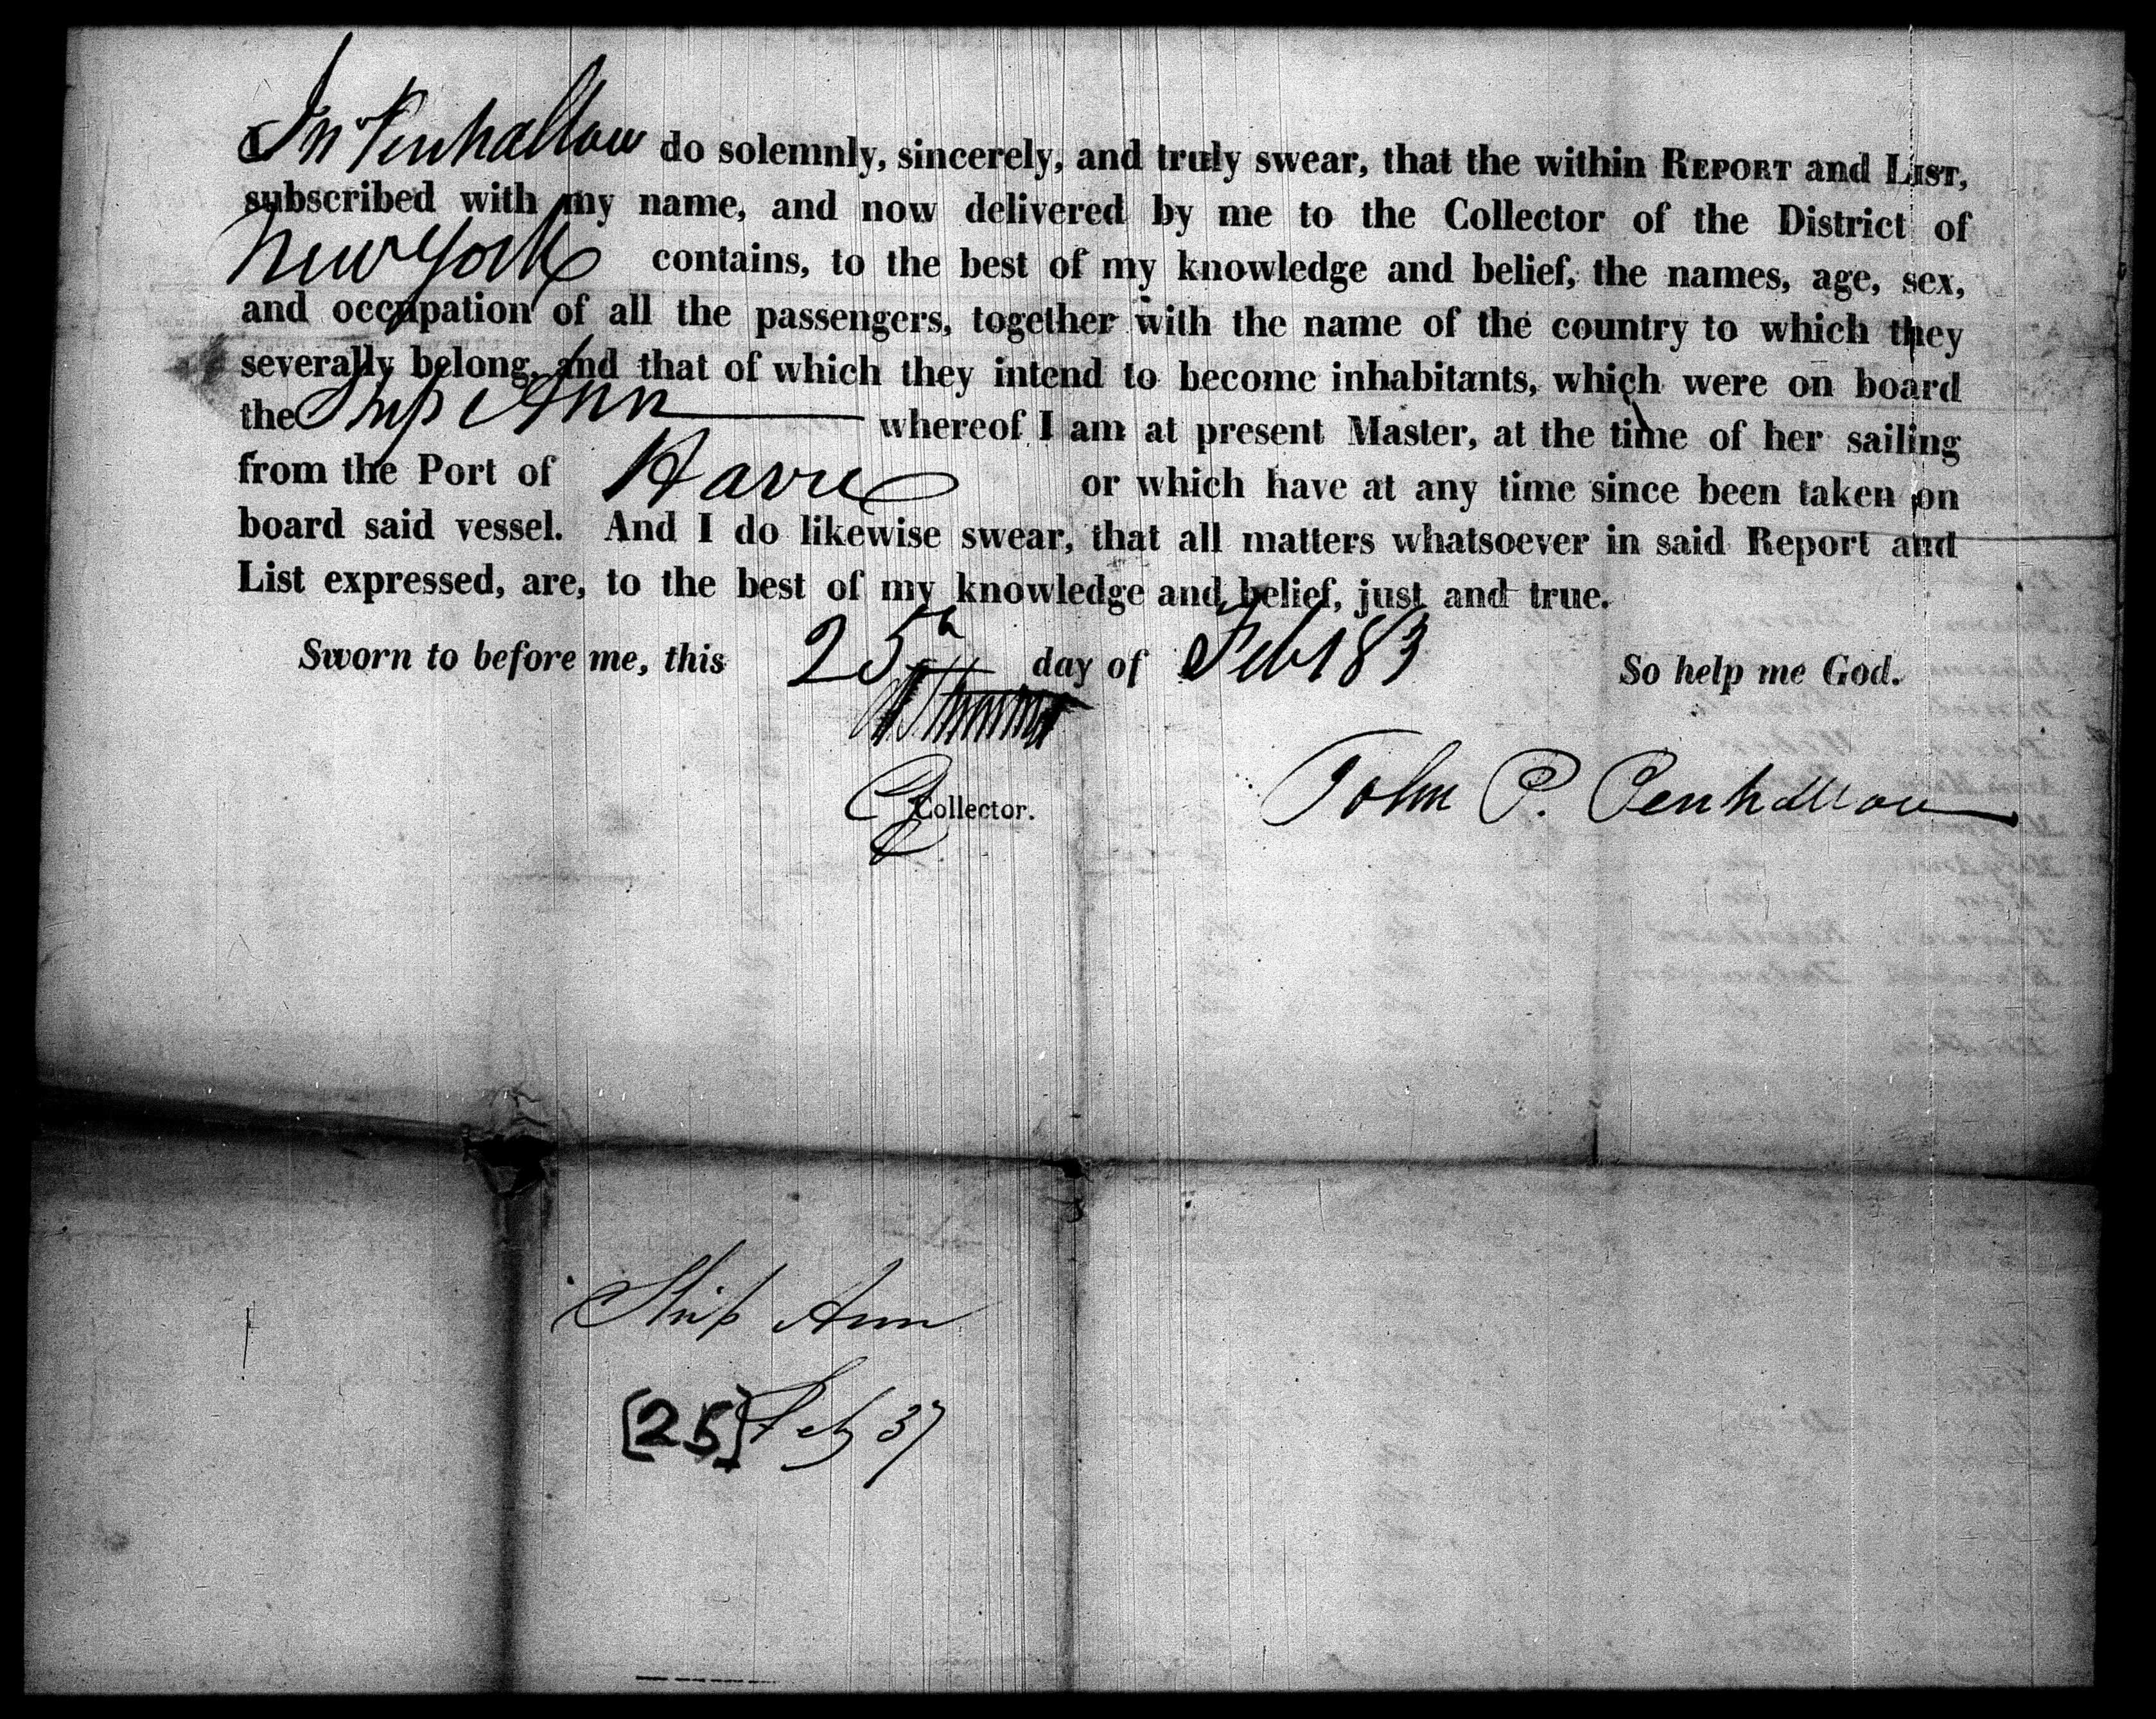 Jn Penhallow do solemnly, sincerely, and truly swear, that the within REPORT and LIST,
subscribed with my name, and now delivered by me to the Collector of the District of
New York contains, to the best of my knowledge and belief, the names, age, sex,
and occupation of all the passengers, together with the name of the country to which they
severally belong, and that of which they intend to become inhabitants, which were on board
the Ship Ann whereof I am at present Master, at the time of her sailing
from the Port of Havre or which have at any time since been taken on
board said vessel. And I do likewise swear, that all matters whatsoever in said Report and
List expressed, are, to the best of my knowledge and belief, just and true.
Sworn to before me, this 25h day of Feb 183 So help me God.
Collector. John P. Penhallow
Ship Ann
[25] Feby 37